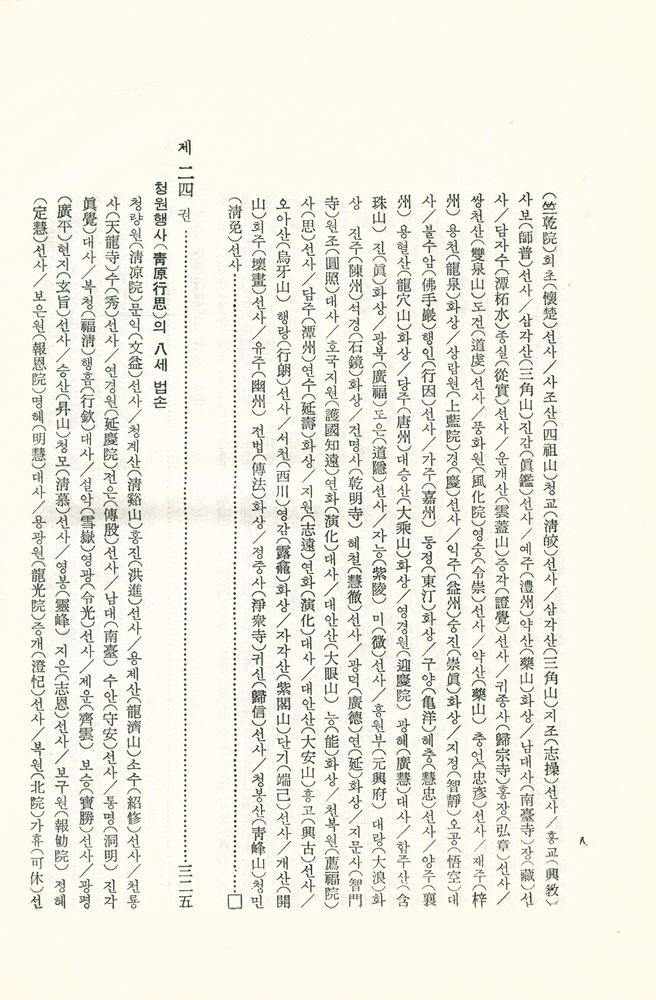 (竺乾院)회초(懷楚)선사／사조산(四祖山)청교(淸皎)선사／삼각산(三角山)지조(志操)선사／흥교(興敎)
사보(師普)선사／삼각산(三角山)진감(眞鑑)선사／예주(澧州)약산(藥山)화상／남대사(南臺寺)장(藏)선
사／담자수(潭柘水)종실(從實)선사／운개산(雲蓋山)증각(證覺)선사／귀종사(歸宗寺)홍장(弘章)선사／
쌍천산(雙泉山)도건(道虔)선사／풍화원(風化院)영숭(令崇)선사／약산(藥山) 충언(忠彦)선사／재주(梓
州) 용천(龍泉)화상／상람원(上藍院)경(慶)선사／익주(益州)숭진(崇眞)화상／지정(智靜)오공(悟空)대
사／불수암(佛手巖)행인(行因)선사／가주(嘉州) 동정(東汀)화상／구양(龜洋)혜충(慧忠)선사／양주(襄
州) 용혈산(龍穴山)화상／당주(唐州)대승산(大乘山)화상／영경원(迎慶院) 광혜(廣慧)대사／함주산(含
珠山) 진(眞)화상／광복(廣福)도은(道隱)선사／자능(紫陵) 미(微)선사／흥원부(元興府) 대랑(大浪)화
상 진주(陳州)석경(石鏡)화상／건명사(乾明寺) 혜철(慧徹)선사／광덕(廣德)연(延)화상／지문사(智門
寺)원조(圓照)대사／호국지원(護國知遠)연화(演化)대사／대안산(大眼山) 능(能)화상／천복원(薦福院)
사(思)선사／담주(潭州)연수(延壽)화상／지원(志遠)연화(演化)대사／대안산(大安山)흥고(興古)선사／
오아산(烏牙山) 행랑(行朗)선사／서천(西川)영감(靈龕)화상／자각산(紫閣山)단기(端己)선사／개산(開
山)회주(懷晝)선사／유주(幽州) 전법(傳法)화상／정중사(淨衆寺)귀신(歸信)선사／청봉산(靑峰山)청면
(淸免)선사……□
제 二四 권……三二五
청원행사(靑原行思)의 八세 법손
청량원(淸凉院)문익(文益)선사／청계산(淸谿山)홍진(洪進)선사／용제산(龍濟山)소수(紹修)선사／천룡
사(天龍寺)수(秀)선사／연경원(延慶院)전은(傳殷)선사／남대(南臺) 수안(守安)선사／통명(洞明) 진각
(眞覺)대사／복청(福淸)행흠(行欽)대사／설악(雪嶽)영광(令光)선사／제운(齊雲) 보승(寶勝)선사／광평
(廣平)현지(玄旨)선사／승산(昇山)청모(淸慕)선사／영봉(靈峰) 지은(志恩)선사／보구원(報劬院) 정혜
(定慧)선사／보은원(報恩院)명혜(明慧)대사／용광원(龍光院)증개(澄忋)선사／복원(北院)가휴(可休)선